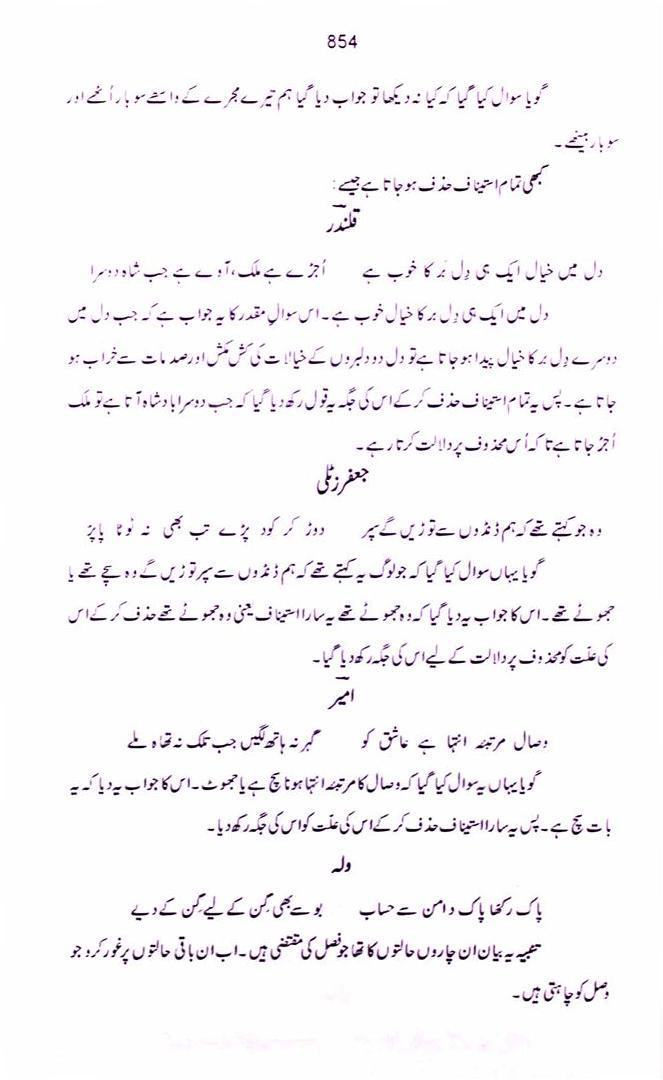 854
گویا سوال کیا گیا کہ کیا نہ دیکھا تو جواب دیا گیا ہم تیرے مجرے کے واسطے سو بار اُٹھے اور
سو بار بیٹھے۔
کبھی تمام استیناف حذف ہو جاتا ہے جیسے:
قلندر
دل میں خیال ایک ہی دِل بَر کا خوب ہے اُجڑے ہے ملک، آوے ہے جب شاہ دوسرا
دل میں ایک ہی دِل بر کا خیال خوب ہے۔ اس سوالِ مقدر کا یہ جواب ہے کہ جب دل میں
دوسرے دِل بَر کا خیال پیدا ہو جاتا ہے تو دل دو دلبروں کے خیالات کی کش مکش اور صدمات سے خراب ہو
جاتا ہے۔ پس یہ تمام استیناف حذف کر کے اس کی جگہ یہ قول رکھ دیا گیا کہ جب دوسرا بادشاہ آتا ہے تو ملک
اُجڑ جاتا ہے تاکہ اُس محذوف پر دلالت کرتا رہے۔
جعفر زٹلی
وہ جو کہتے تھے کہ ہم ڈنڈوں سے توڑیں گے سپر دوڑ کر کود پڑے تب بھی نہ ٹوٹا پاپڑ
گویا یہاں سوال کیا گیا کہ جو لوگ یہ کہتے تھے کہ ہم ڈنڈوں سے سپر توڑیں گے وہ سچے تھے یا
جھوٹے تھے۔ اس کا جواب یہ دیا گیا کہ وہ جھوٹے تھے یہ سارا استیناف یعنی وہ جھوٹے تھے حذف کر کے اس
کی علّت کو محذوف پر دلالت کے لیے اس کی جگہ رکھ دیا گیا۔
امیر
وصال مرتبۂ انتہا ہے عاشق کو گہر نہ ہاتھ لگیں جب تلک نہ تھاہ ملے
گویا یہاں یہ سوال کیا گیا کہ وصال کا مرتبۂ انتہا ہونا سچ ہے یا جھوٹ۔ اس کا جواب یہ دیا کہ یہ
بات سچ ہے۔ پس یہ سارا استیناف حذف کر کے اس کی علّت کو اس کی جگہ رکھ دیا۔
ولہ
پاک رکھا پاک دامن سے حساب بوسے بھی گِن کے لیے گِن کے دیے
تنبیہ یہ بیان ان چاروں حالتوں کا تھا جو فصل کی مقتضی ہیں۔ اب ان باقی حالتوں پر غور کرو جو
وصل کو چاہتی ہیں۔